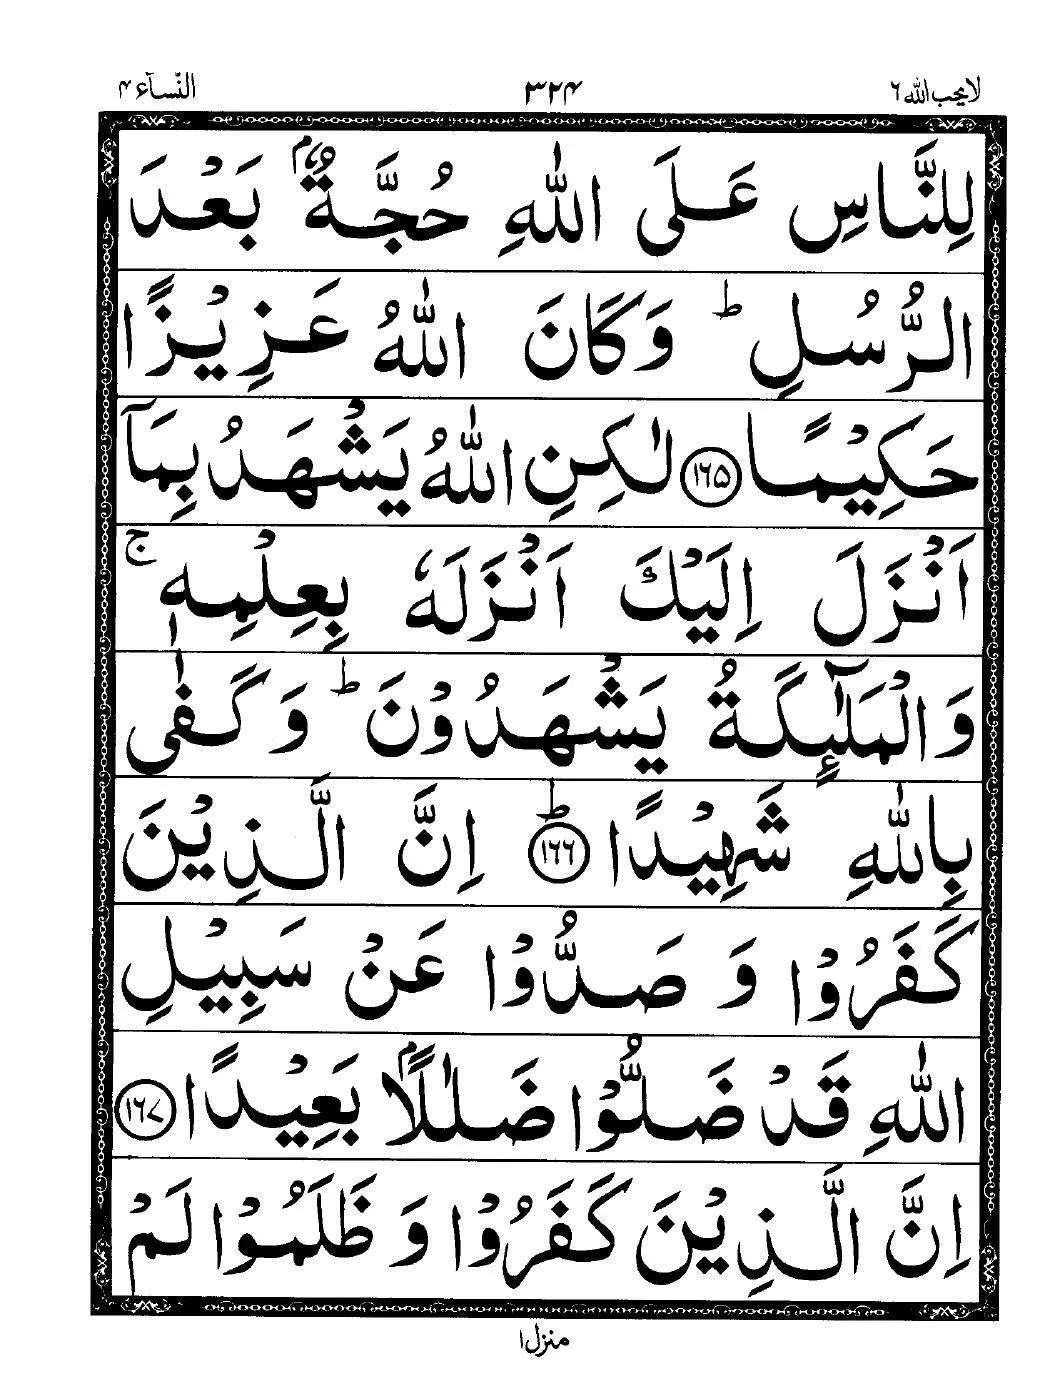 لا يحب الله ٦ ٣٢٤ النّسآء ٤
لِلنَّاسِ عَلَى اللّٰهِ حُجَّةٌۢ بَعْدَ
الرُّسُلِ ؕ وَكَانَ اللّٰهُ عَزِيْزًا
حَكِيْمًا ۱۶۵ لٰكِنِ اللّٰهُ يَشْهَدُ بِمَاۤ
اَنْزَلَ اِلَيْكَ اَنْزَلَهٗ بِعِلْمِهٖ ۚ
وَالْمَلٰٓئِكَةُ يَشْهَدُوْنَ ؕ وَكَفٰى
بِاللّٰهِ شَهِيْدًا ؕ ۱۶۶ اِنَّ الَّذِيْنَ
كَفَرُوْا وَ صَدُّوْا عَنْ سَبِيْلِ
اللّٰهِ قَدْ ضَلُّوْا ضَلٰلًاۢ بَعِيْدًا ۱۶۷
اِنَّ الَّذِيْنَ كَفَرُوْا وَ ظَلَمُوْا لَمْ
منزل ۱